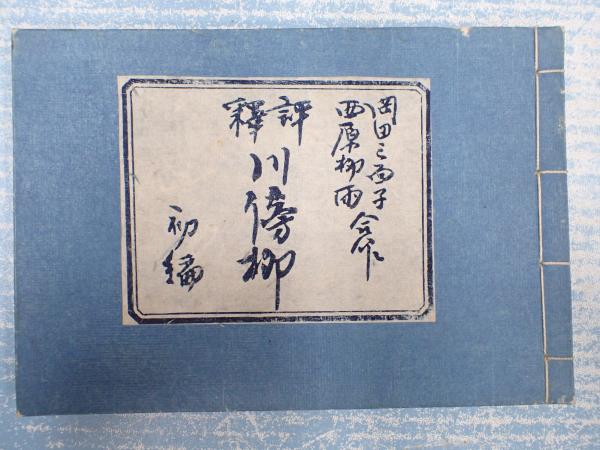 岡田三面子
西原柳雨 合作
評釋
川傍柳
初編